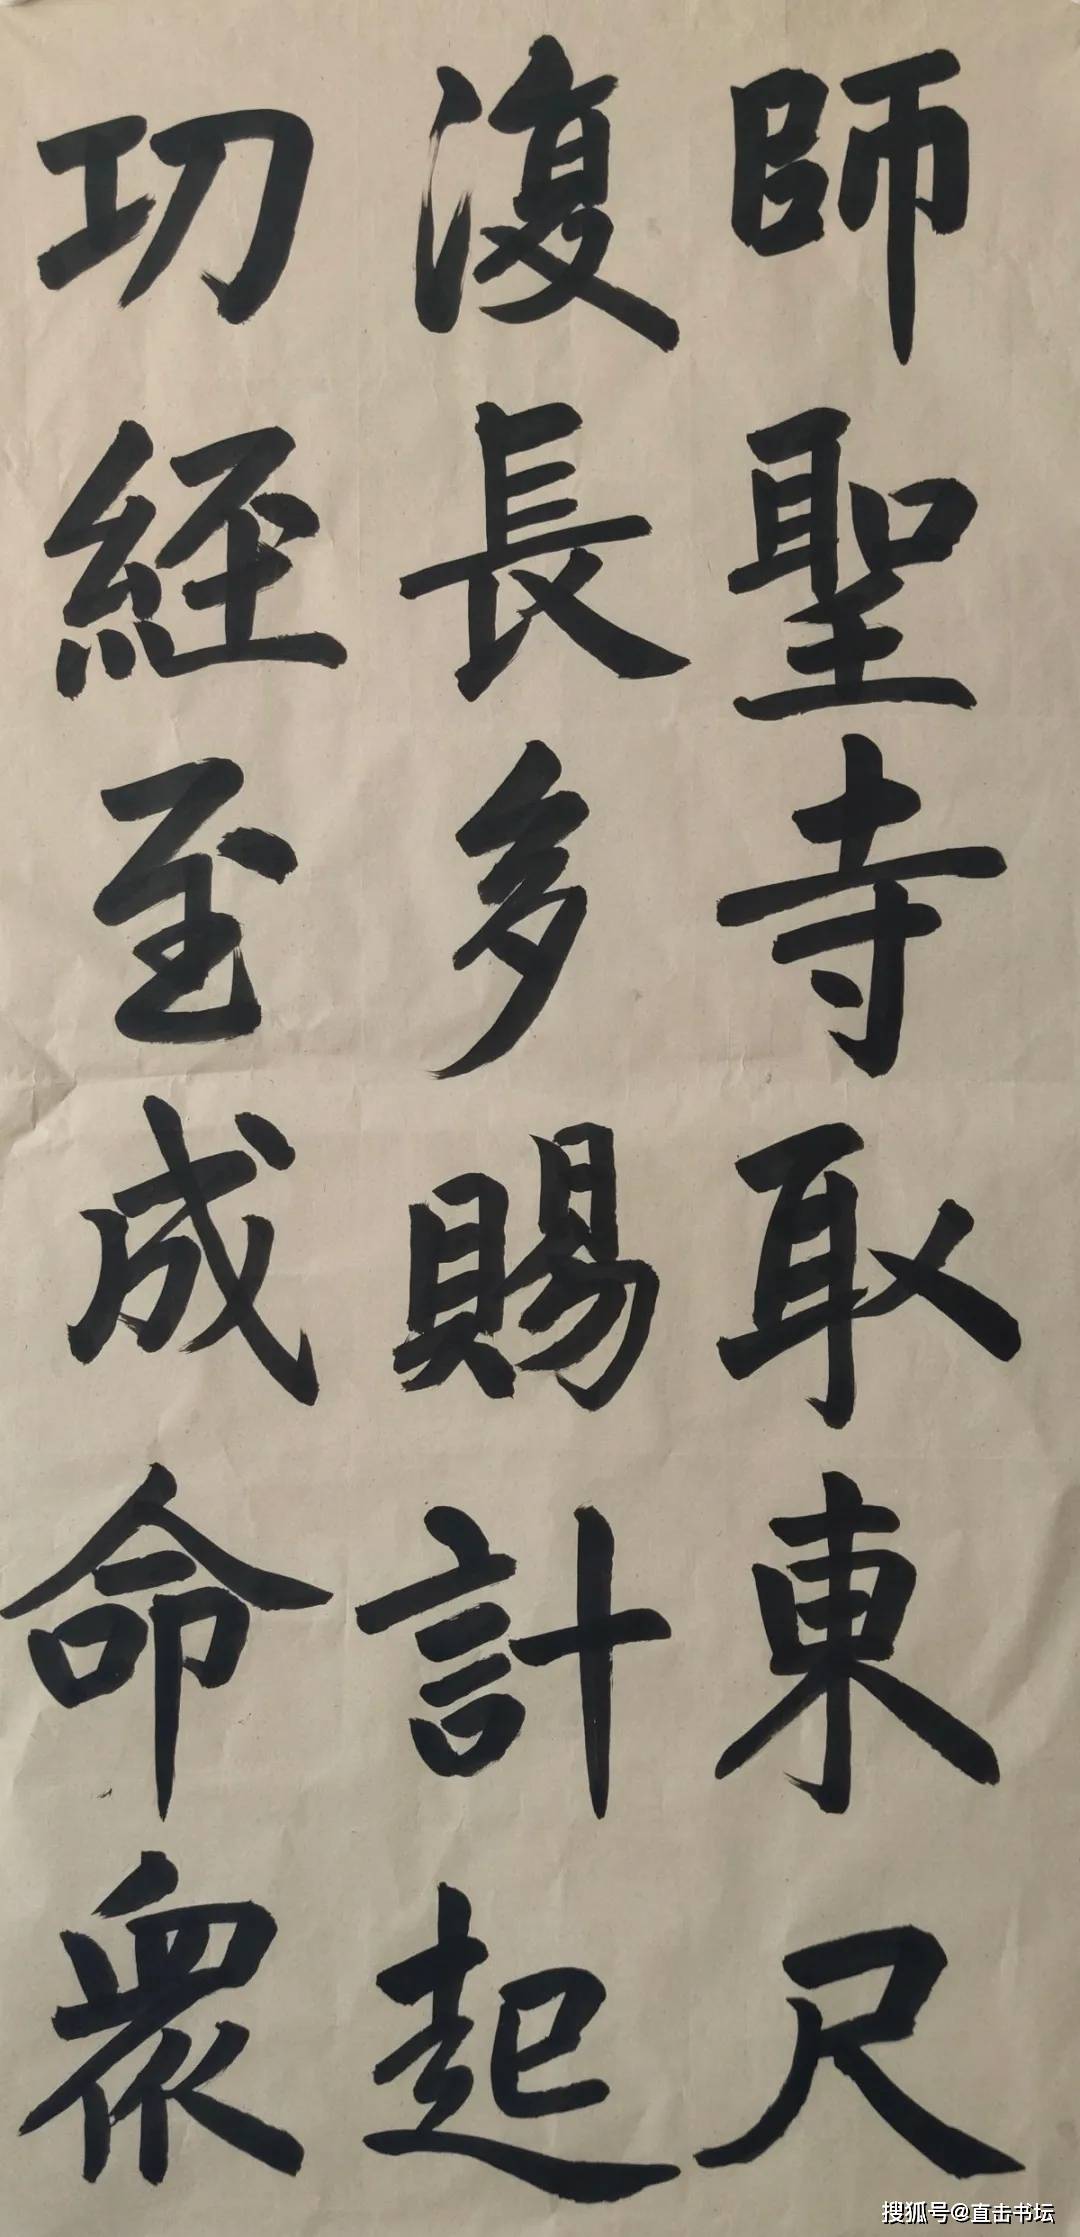 師聖寺取東尺
復長多賜計起
功經至成命眾
搜狐号@直击书坛